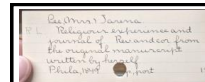 Lee, Mrs. Jarena
Religious experience and
journal of Rev and cor from
the original manuscript
written by herself
Phila, 1849 port